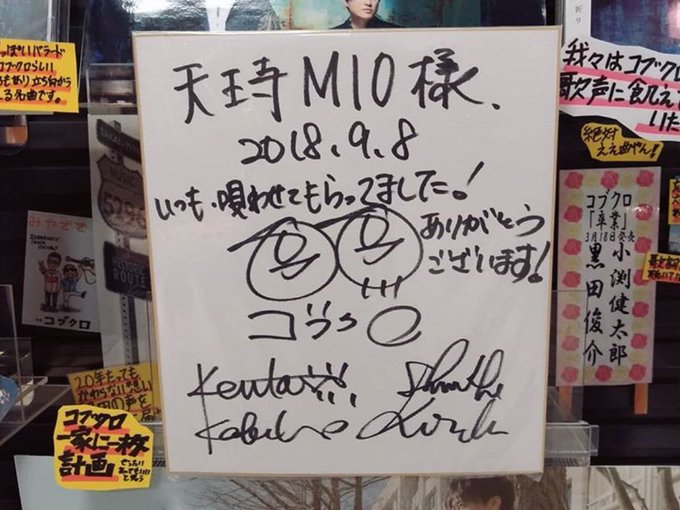 っぽいバラード
コブクロらしい
える名曲です。
天王寺MIO様、
2018.9.8
いつも、唄わせてもらってました!
ありがとう
ございます!
コブクロ
我々はコブクロ
歌声に飢えて
いた
絶対
ええ曲やん!
コブクロ
「卒業」
3月18日発売
小渕健太郎
黒田俊介
みやざき
コブクロ
HISTORIC
ROUTE
20年たっても
かわらない想い
コブクロ
一家に一枚
計画